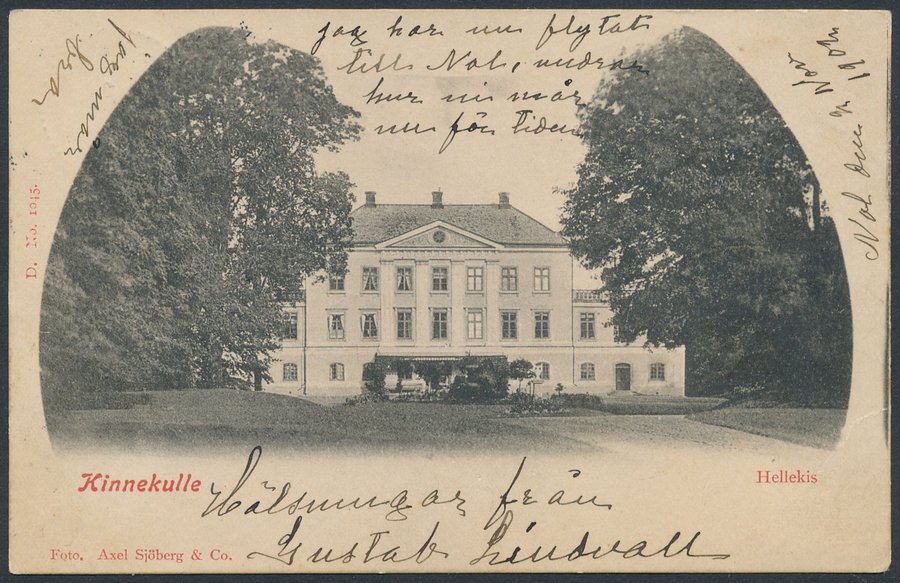 jag har nu flytat
till Nol, undrar
hur ni mår
nu för tiden
Nol den
D. No. 1945.
Kinnekulle
Hellekis
Hälsningar från
Gustab Lindvall
Foto. Axel Sjöberg & Co.